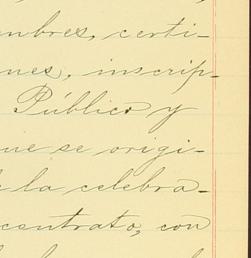 mbres, certi-
nes, inscrip-
Público y
que se origi-
la celebra-
contrato, con